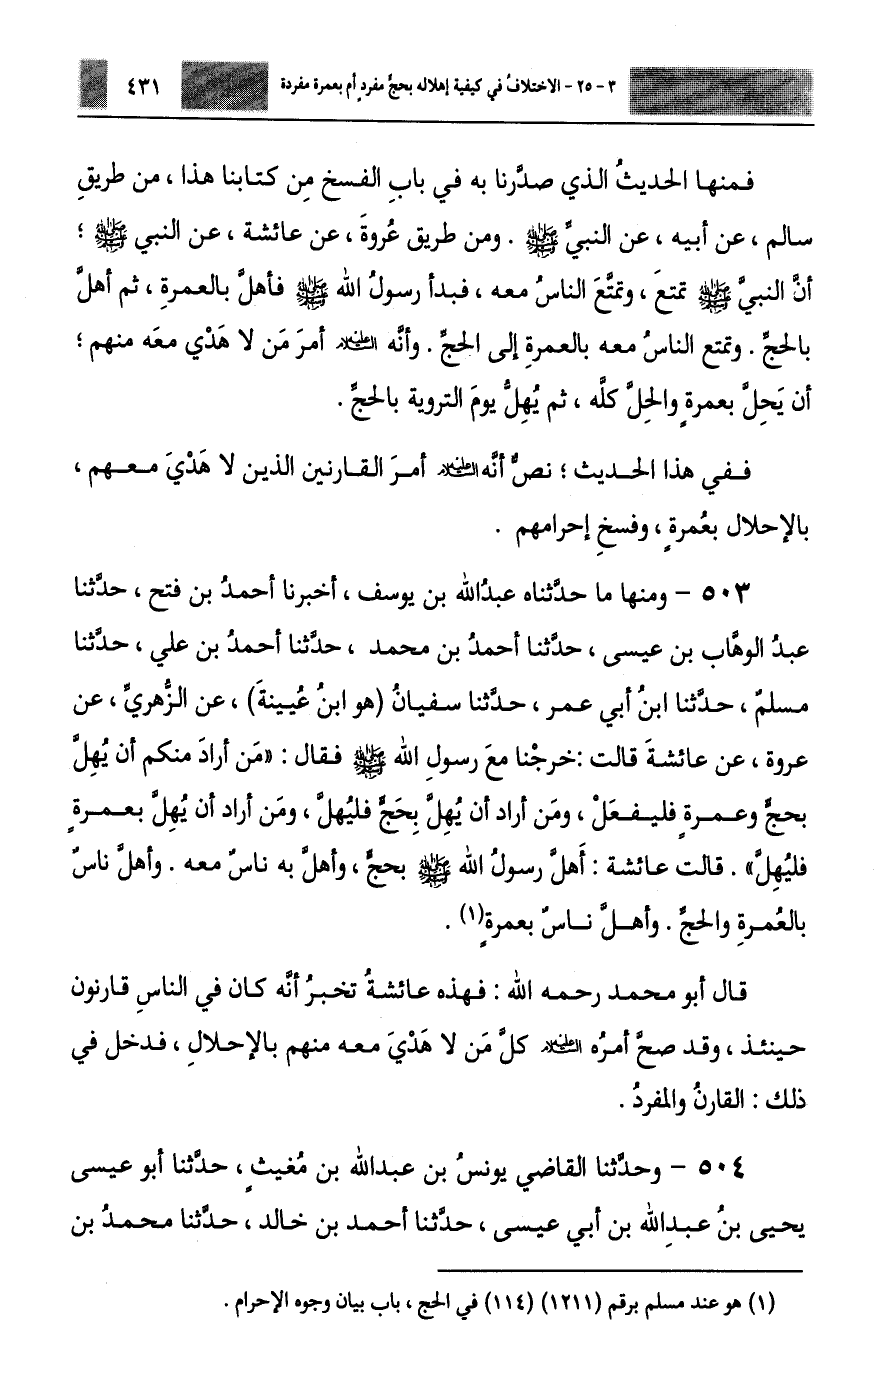 ٣ - ٢٥ - الاختلافُ في كيفية إهلاله بحجٍّ مفردٍ أم بعمرة مفردة ٤٣١
فـمنها الحديثُ الذي صدَّرنا به في بابِ الفسخِ مِن كتابنا هذا ، من طريقِ
سالم ، عن أبيه ، عن النبيِّ ﷺ . ومن طريق عُروةَ ، عن عائشة ، عن النبي ﷺ ؛
أنَّ النبيَّ ﷺ تمتعَ ، وتمتَّعَ الناسُ معه ، فبدأ رسولُ الله ﷺ فأهلَّ بالعمرةِ ، ثم أهلَّ
بالحجِّ . وتمتع الناسُ معه بالعمرةِ إلى الحجِّ . وأنَّه عليه السلام أمرَ مَن لا هَدْي معَه منهم ؛
أن يَحِلَّ بعمرةٍ والحِلَّ كلَّه ، ثم يُهِلُّ يومَ التروية بالحجِّ .
فـفي هذا الحـديث ؛ نصٌّ أنَّه عليه السلام أمـرَ القـارنين الذيـن لا هَدْيَ مـعـهم ،
بالإحلال بعُمرةٍ ، وفسخِ إحرامهم .
٥٠٣ - ومنها ما حدَّثناه عبدُالله بن يوسف ، أخبرنا أحمدُ بن فتح ، حدَّثنا
عبدُ الوهَّاب بن عيسى ، حدَّثنا أحمدُ بن محمد ، حدَّثنا أحمدُ بن علي ، حدَّثنا
مسلمٌ ، حدَّثنا ابنُ أبي عمر ، حدَّثنا سفيانُ (هو ابنُ عُيينةَ) ، عن الزُّهريِّ ، عن
عروة ، عن عائشةَ قالت :خرجْنا معَ رسولِ الله ﷺ فقال : «مَن أرادَ منكم أن يُهِلَّ
بحجٍّ وعـمـرةٍ فليـفـعَلْ ، ومَن أراد أن يُهِلَّ بِحَجٍّ فليُهلَّ ، ومَن أراد أن يُهِلَّ بعـمـرةٍ
فليُهِلَّ» . قالت عائشة : أَهلَّ رسولُ الله ﷺ بحجٍّ ، وأهلَّ به ناسٌ معه . وأهلَّ ناسٌ
بالعُمرةِ والحجِّ . وأهـلَّ نـاسٌ بعمرةٍ(١) .
قال أبو محمد رحمه الله : فهذه عائشةُ تخبرُ أنَّه كان في الناسِ قارنون
حينئذ ، وقد صحَّ أمرُه عليه السلام كلَّ مَن لا هَدْيَ معه منهم بالإحلالِ ، فدخل في
ذلك : القارنُ والمفردُ .
٥٠٤ - وحدَّثنا القاضي يونسُ بن عبدالله بن مُغيثٍ ، حدَّثنا أبو عيسى
يحيى بنُ عبدِالله بن أبي عيسى ، حدَّثنا أحمد بن خالد ، حدَّثنا محمدُ بن
(١) هو عند مسلم برقم (١٢١١) (١١٤) في الحج ، باب بيان وجوه الإحرام .